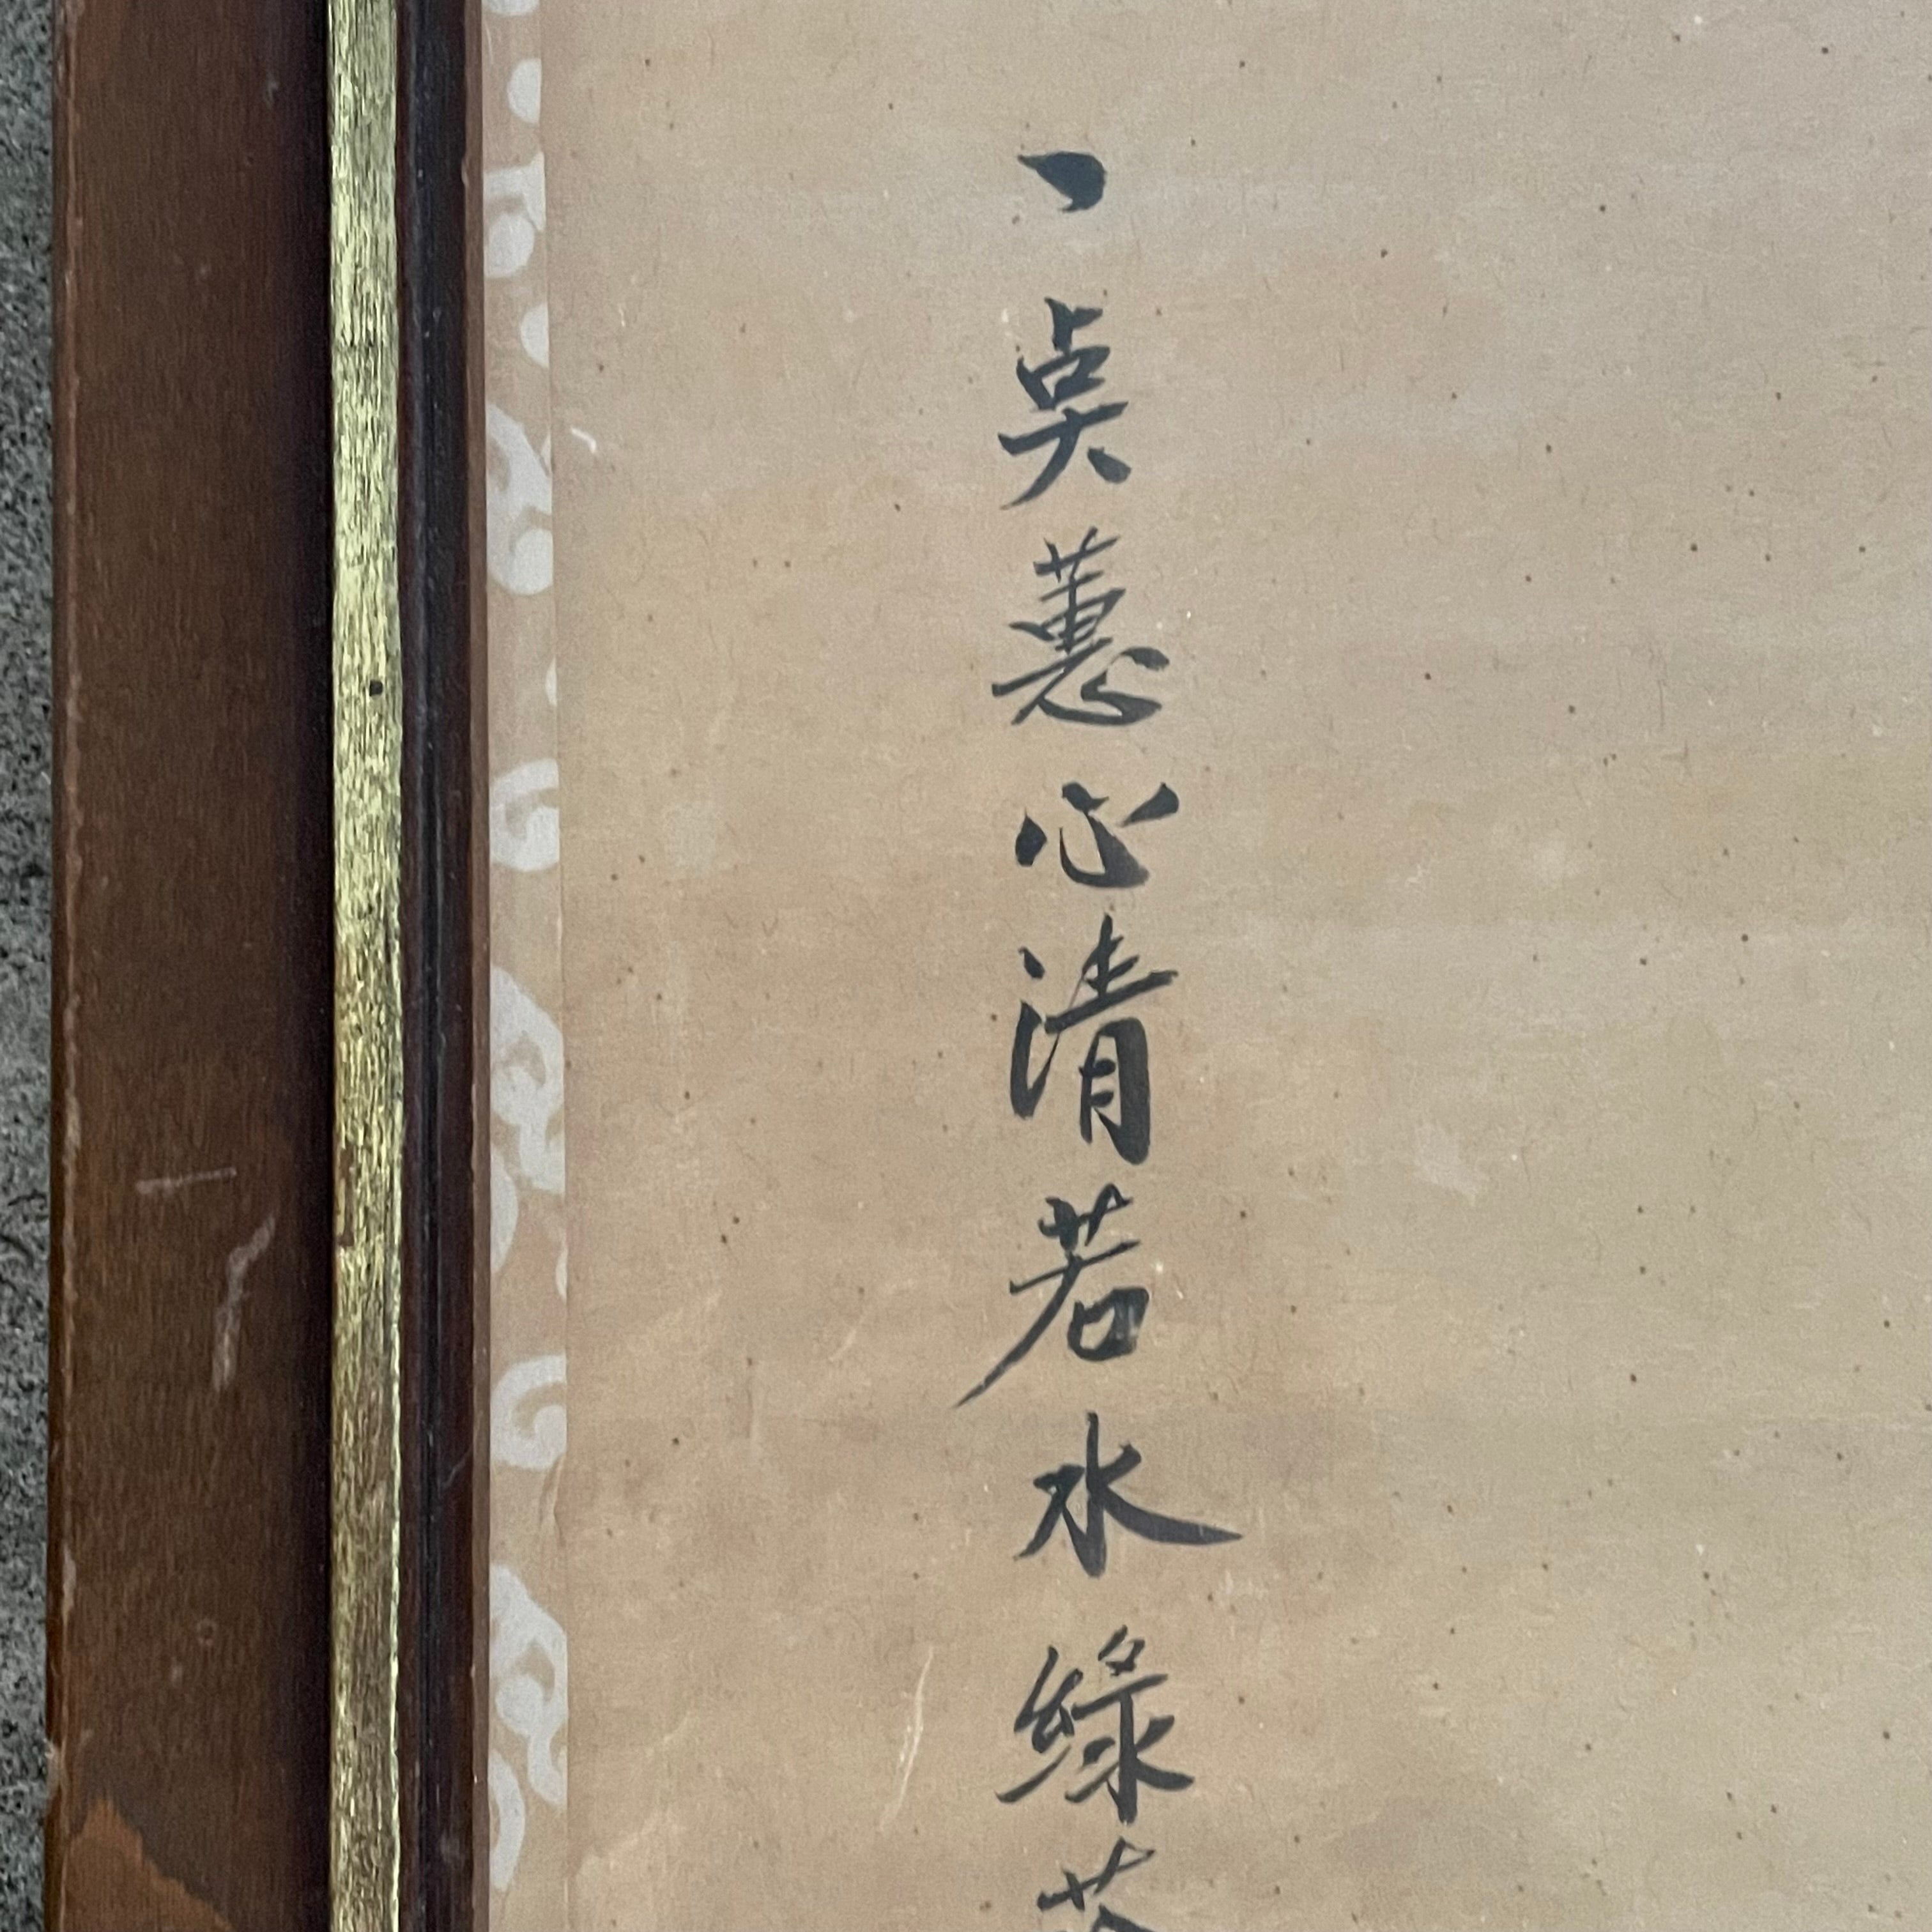 一奌蕙心清若水綠